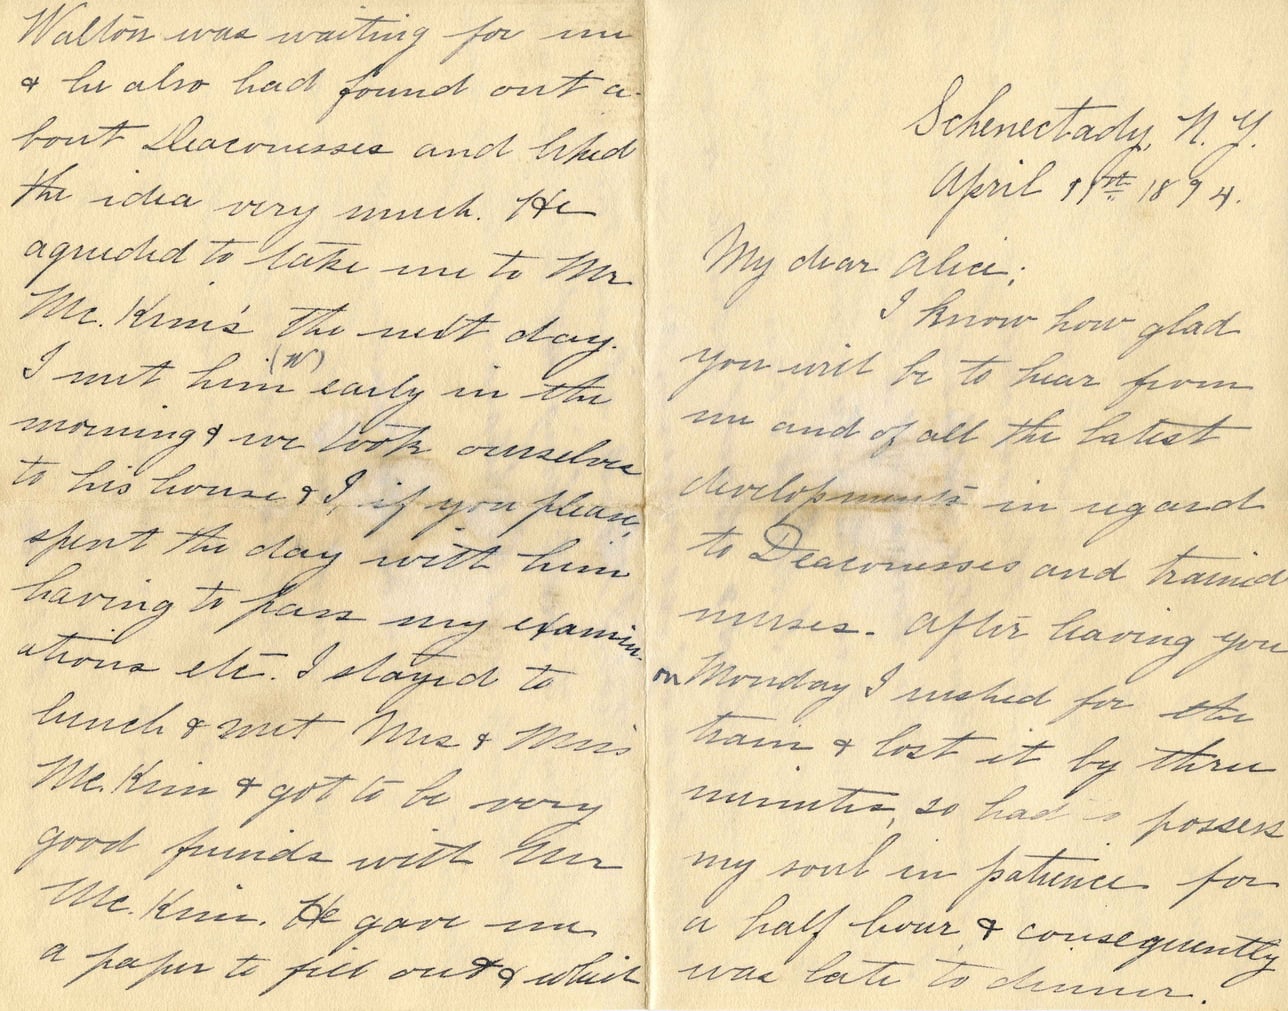 Schenectady, N. Y.
April 11th 1894.
My dear Alice;
I know how glad
you will be to hear from
me and of all the latest
developments in regard
to Deaconesses and trained
nurses. After leaving you
on Monday I rushed for the
train & lost it by three
minutes, so had to possess
my soul in patience for
a half hour, & consequently
was late to dinner.
Walton was waiting for me
& he also had found out a-
bout Deaconesses and liked
the idea very much. He
agreeded to take me to Mr
Mc. Kim's the next day.
I met him (W) early in the
morning & we took ourselves
to his house & I, if you please,
spent the day with him
having to pass my examin-
ations etc. I stayed to
lunch & met Mrs & Miss
Mc. Kim & got to be very
good friends with Mr
Mc. Kim. He gave me
a paper to fill out & which